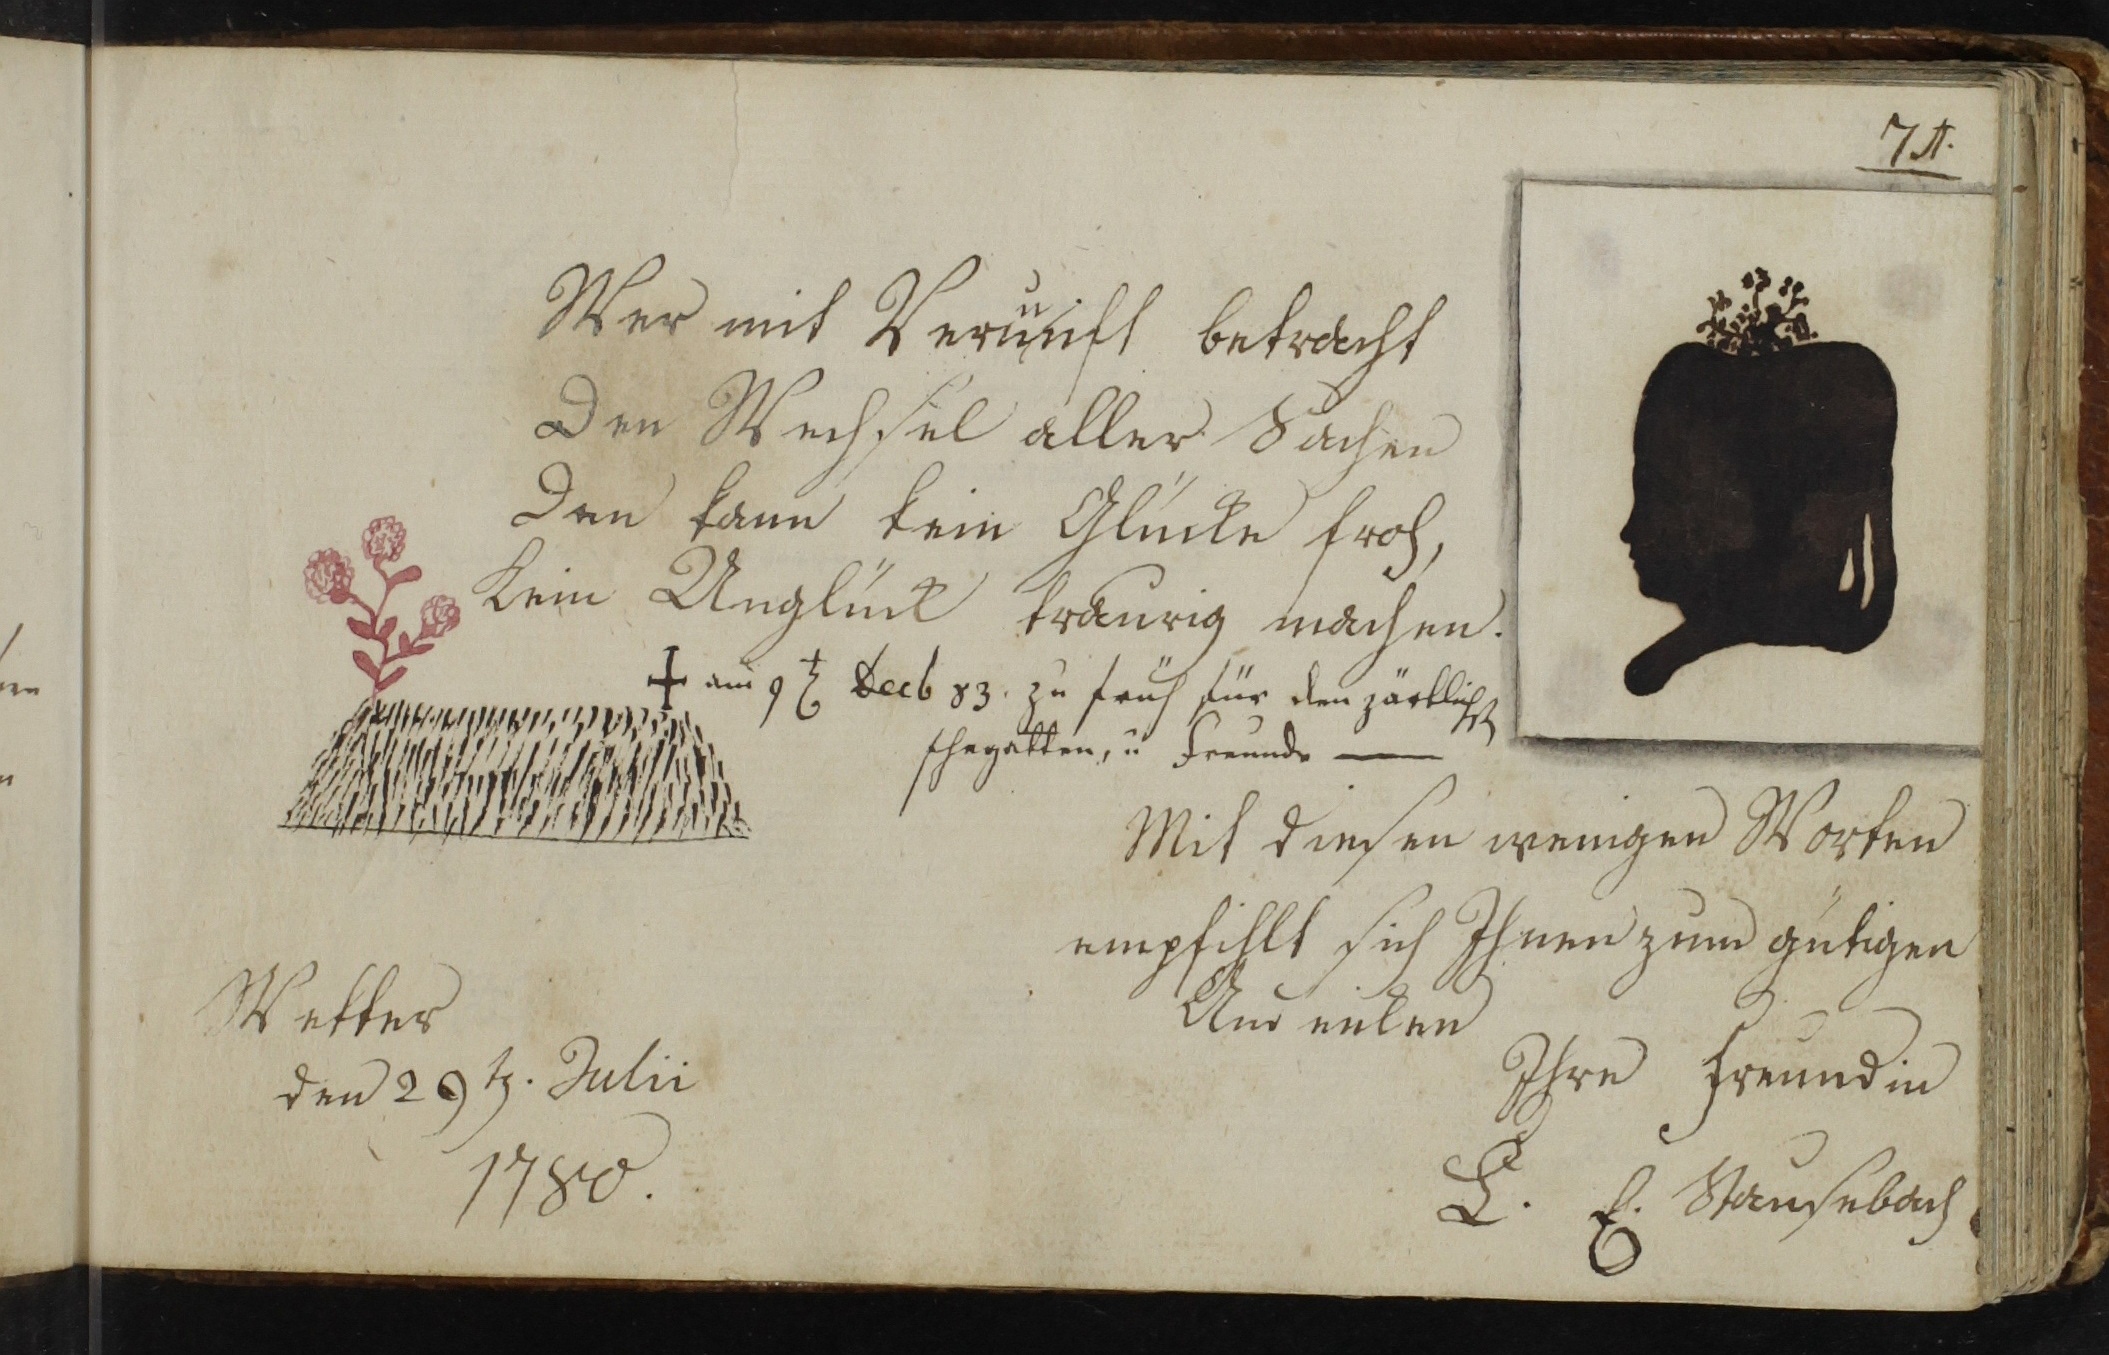 71.
Wer mit Vernunft betracht
Den Wechsel aller Sachen
Den kann kein Glücke froh,
Kein Unglück traurig machen.
† am 9t Decb 83. zu früh für den zärtlichst
Ehegatten, u Freunde —
Mit diesen wenigen Worten
empfihlt sich Ihnen zum gütigen
Andenken
Wetter
den 29tz. Julii
1780.
Ihre Freundin
L. E. Stausebach